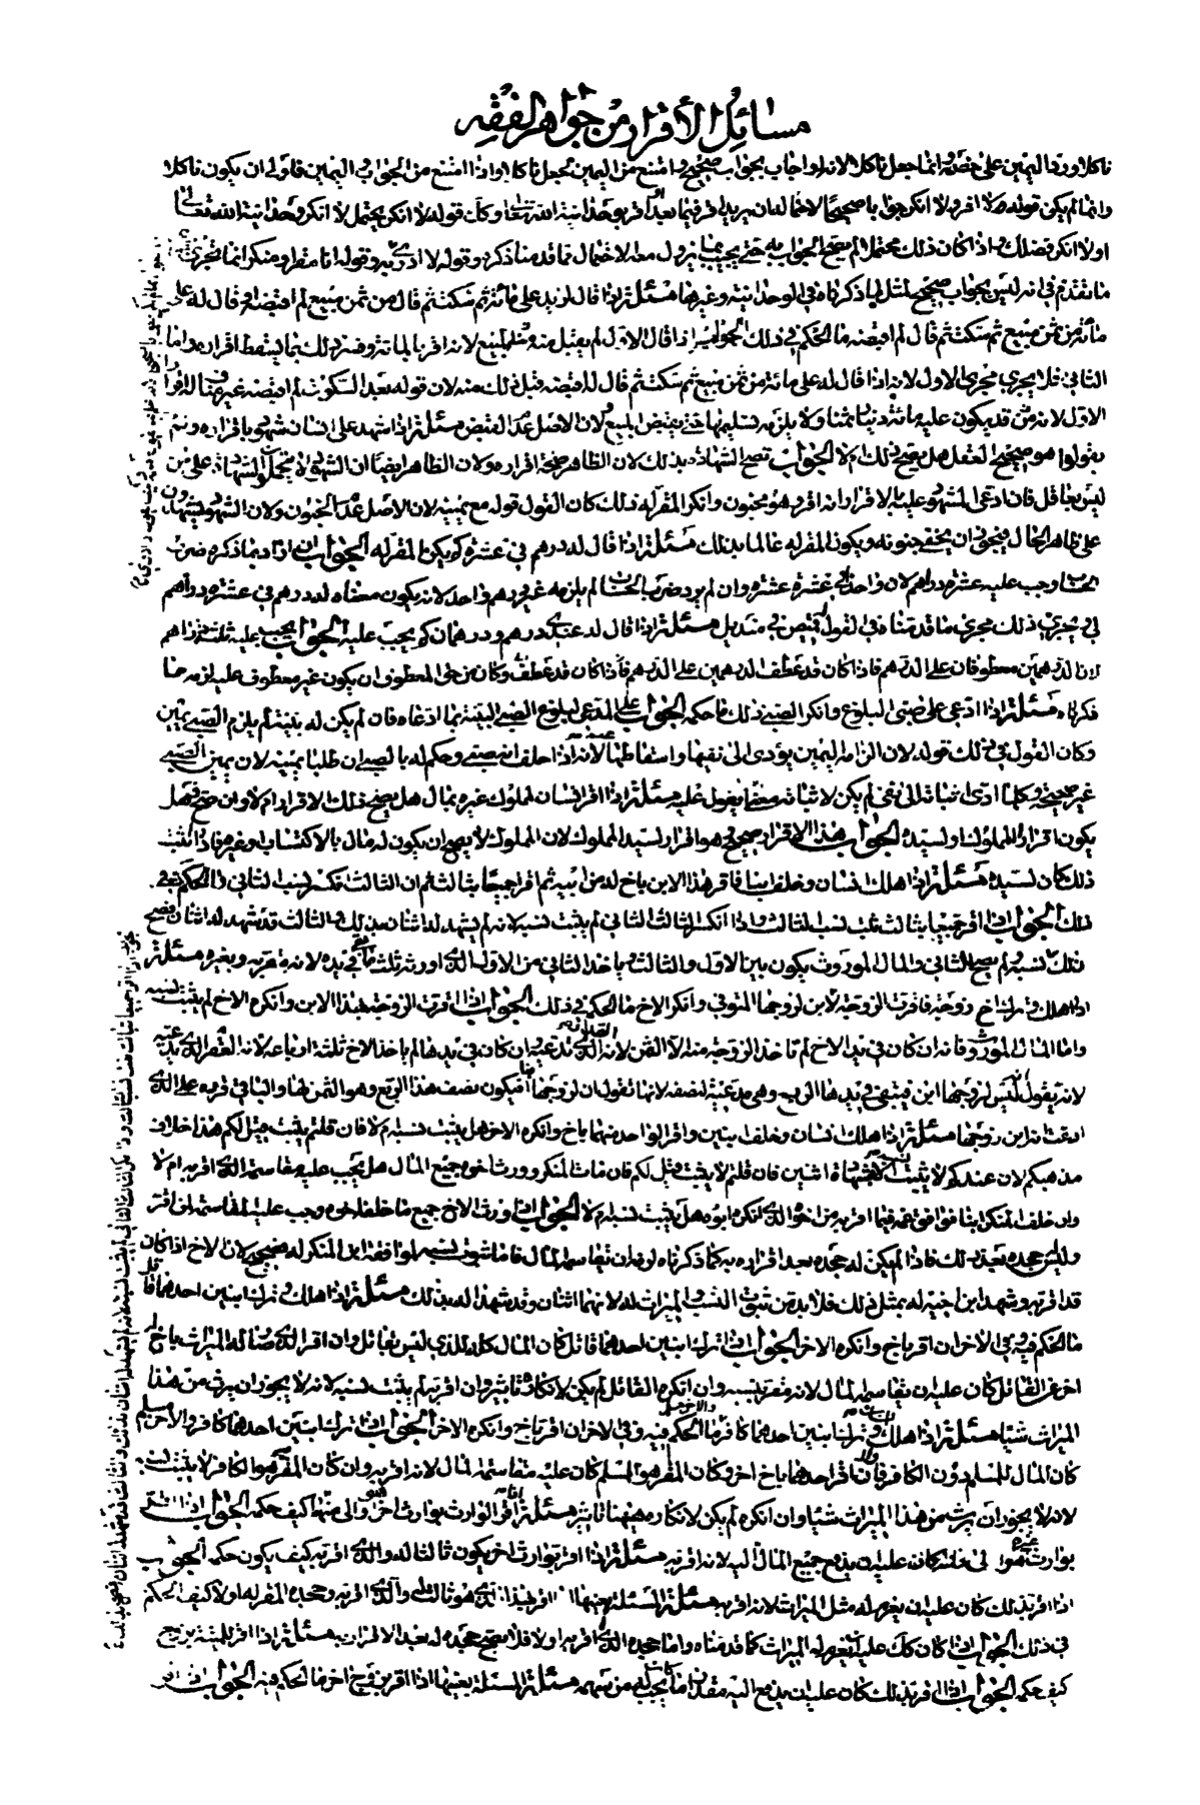 مسائل الأقرار من جواهر الفقه
ناكلا ورد اليمين على خصمه وانما جعل ناكلا لانه لو اجاب بجواب صحيح وامتنع من اليمين يجعل ناكلا واذا امتنع من الجواب واليمين فاولى ان يكون ناكلا
وانما لم يكن قوله لا اقر ولا انكر جوابا صحيحا لاحتماله ان يريد لا اقر فيما بعد اقر بوحدانية الله تعالى وكان قوله لا انكر يحتمل لا انكر وحدانية الله تعالى
او لا انكر فضلك واذا كان ذلك محتملا لم يصح الجواب به حتى يجيب بما يزول معه الاحتمال بما قدمنا ذكره وقوله لا ادرى وقوله انا مقر او منكر انما تجرى
ما تقدم في انه ليس بجواب صحيح لمثل ما ذكرناه في الوحدانية وغيرها مسئلة اذا قال لزيد على مائة ثم سكت ثم قال من ثمن مبيع لم اقبضه او قال له على
مائة من ثمن مبيع ثم سكت ثم قال لم اقبضه ما الحكم في ذلك الجواب اذا قال الاول لم يقبل منه لانه اقر بالمائة وفسر ذلك بما يسقط اقراره واما
الثاني فلا يجرى مجرى الاول لانه اذا قال له على مائة من ثمن مبيع ثم سكت ثم قال لم اقبضه قبل ذلك منه لان قوله بعد السكوت لم اقبضه غير مناف لاقراره
الاول لانه قد يكون عليه مائة دينار ثمنا ولا يلزمه تسليمها حتى يقبض المبيع لان الاصل عدم القبض مسئلة اذا شهد على انسان شهود باقراره ولم
يقولوا هو صحيح العقل هل يصح ذلك ام لا الجواب تصح الشهادة بذلك لان الظاهر صحة اقراره ولان الظاهر ايضا ان الشهود لا يتحملون الشهادة على من
ليس بعاقل فان ادعى المشهود عليه بالاقرار انه اقر وهو مجنون وانكر المقر له ذلك كان القول قوله مع يمينه لان الاصل عدم الجنون ولان الشهود يشهدون
على ظاهر الحال فيجوز ان يخفى جنونه ويكون المقر له عالما بذلك مسئلة اذا قال له درهم في عشرة كم يكون للمقر له الجواب ان اراد بما ذكره ضرب
الحساب وجب عليه عشرة دراهم لان واحدا في عشرة عشرة وان لم يرد ضرب الحساب لم يلزمه غير درهم واحد لانه يكون معناه له درهم في عشرة دراهم
لي ويجرى ذلك مجرى ما قدمناه في القول قميص في منديل مسئلة اذا قال له عندى درهم ودرهمان كم يجب عليه الجواب يجب عليه ثلثة دراهم
لان الدرهمين معطوفان على الدرهم فاذا كان قد عطف الدرهمين على الدرهم فاذا كان قد عطف وكان من حق المعطوف ان يكون غير معطوف عليه لزمه ما
ذكرناه مسئلة اذا ادعى على صبى البلوغ وانكر الصبى ذلك ما حكمه الجواب على المدعى لبلوغ الصبى البينة بما ادعاه فان لم يكن له بينة لم يلزم الصبى يمين
وكان القول في ذلك قوله لان الزامه اليمين يؤدى الى نفيها واسقاطها لانه اذا حلف انه صبى وحكم له بالصبى ابطلنا يمينه لان يمين الصبى
غير صحيحة وكلما ادى اثباته الى نفيه لم يكن لاثباته معنى يعول عليه مسئلة اذا اقر انسان لمملوك غيره بمال هل يصح ذلك الاقرار ام لا وان صح فهل
يكون اقرارا للمملوك او لسيده الجواب هذا الاقرار صحيح وهو اقرار لسيد المملوك لان المملوك لا يصح ان يكون له مال بالاكتساب وغيره فاذا ثبت
ذلك كان لسيده مسئلة اذا هلك انسان وخلف ابنا فاقر هذا الابن باخ له من ابيه ثم اقر جميعا بثالث ثم ان الثالث انكر نسب الثاني ما الحكم في
ذلك الجواب اذا اقر جميعا بثالث ثبت نسب الثالث واذا انكر الثالث الثاني لم يثبت نسبه لانه لم يشهد له اثنان بذلك والثالث قد شهد له اثنان فصح
بذلك نسبه ولم يصح الثاني والمال الموروث يكون بين الاول والثالث وياخذ الثاني من الاول الذى اقر به ثلث ما بقى في يده لانه مقر به وبغيره مسئلة
اذا هلك وترك اخ وزوجة فاقرت الزوجة لابن لزوجها المتوفى وانكر الاخ ما الحكم في ذلك الجواب اذا اقرت الزوجة بهذا الابن وانكره الاخ لم يثبت نسبه
واما المال الموروث فانه ان كان في يد الاخ لم تاخذ الزوجة منه الا الثمن لانه القدر الذى تدعيه وان كان في يدها لم ياخذ الاخ ثلثة ارباعه لانه القدر الذى يدعيه
لانه يقول ليس لزوجها ابن فيبقى في يدها الربع وهى مدعية لنصفه لانها تقول ان لزوجها ابنا فيكون نصف هذا الربع وهو الثمن لها والباقى ترده على الذى
ادعت انه ابن زوجها مسئلة اذا هلك انسان وخلف ابنين واقر الواحد منهما باخ وانكره الاخر هل يثبت نسبه ام لا فان قلتم يثبت قيل لكم هذا خلاف
مذهبكم لان عندكم لا يثبت النسب الا بشهادة اثنين فان قلتم لا يثبت قيل لكم فان مات المنكر وورث اخوه جميع المال هل يجب عليه مقاسمة الذى اقر به ام لا
وان خلف المنكر ابنا فوافق عمه فيما اقر به من اخوه الذى انكره ابوه هل يثبت نسبه ام لا الجواب اذا ورث الاخ جميع ما خلفه اخوه وجب عليه المقاسمة لمن اقر
وليس جحده بعد ذلك فاذا لم يكن له جحده بعد اقراره به كما ذكرناه لزمه ان يقاسمه المال فاما ثبوت نسبه لو وافقه ابن المنكر له فصحيح لان الاخ اذا كان
قد اقر به وشهد ابن اخيه له بمثل ذلك فلا بد من ثبوت النسب والميراث له لانهما اثنان وقد شهدا له بذلك مسئلة اذا هلك وترك ابنين احدهما قاتل
ما الحكم فيه وفي الاخر ان اقر باخ وانكره الاخر الجواب اذا ترك ابنين احدهما قاتل كان المال كله للذى ليس بقاتل وان اقر الذى صار له الميراث باخ
اخر غير القاتل كان عليه ان يقاسمه المال لانه مقر بنسبه وان انكره القاتل لم يكن لانكاره تاثير وان اقر به لم يثبت نسبه لانه لا يجوز ان يرث من هذا
الميراث شيئا مسئلة اذا هلك انسان وترك ابنين احدهما كافر والاخر مسلم ما الحكم فيه وفي الاخر ان اقر باخ وانكره الاخر الجواب اذا ترك ابنين احدهما كافر والاخر مسلم
كان المال للمسلم دون الكافر فان اقر احدهما باخ اخر وكان المقر هو المسلم كان عليه مقاسمة المال لانه اقر به وان كان المقر هو الكافر لا يثبت نسبه
لانه لا يجوز ان يرث من هذا الميراث شيئا وان انكره لم يكن لانكاره هيهنا تاثير مسئلة اذا اقر الوارث بوارث اخر اولى منه كيف حكمه الجواب اذا اقر
بوارث هو اولى منه كان عليه ان يدفع جميع المال اليه لانه اقر به مسئلة اذا اقر بوارث اخر يكون ثالثا له والذى اقر به كيف يكون حكمه الجواب
اذا اقر بذلك كان عليه ان يغرم له مثل الميراث لانه اقر به مسئلة المسئلة بعينها اذا اقر بهذا الذى هو ثالث له والذى اقر به وجحده المقر له اولا كيف الحكم
في ذلك الجواب اذا كان كذلك عليه ان يغرم له الميراث كما قدمناه واما جحده الذى اقر به اولا فلا يصح جحده له بعد الاقرار به مسئلة اذا اقر للميتة بزوج
كيف حكمه الجواب اذا اقر بذلك كان عليه ان يدفع اليه مقدار ما كان يجب له من سهمه مسئلة المسئلة بعينها اذا اقر بزوج اخر ما الحكم فيه الجواب اذا اقر